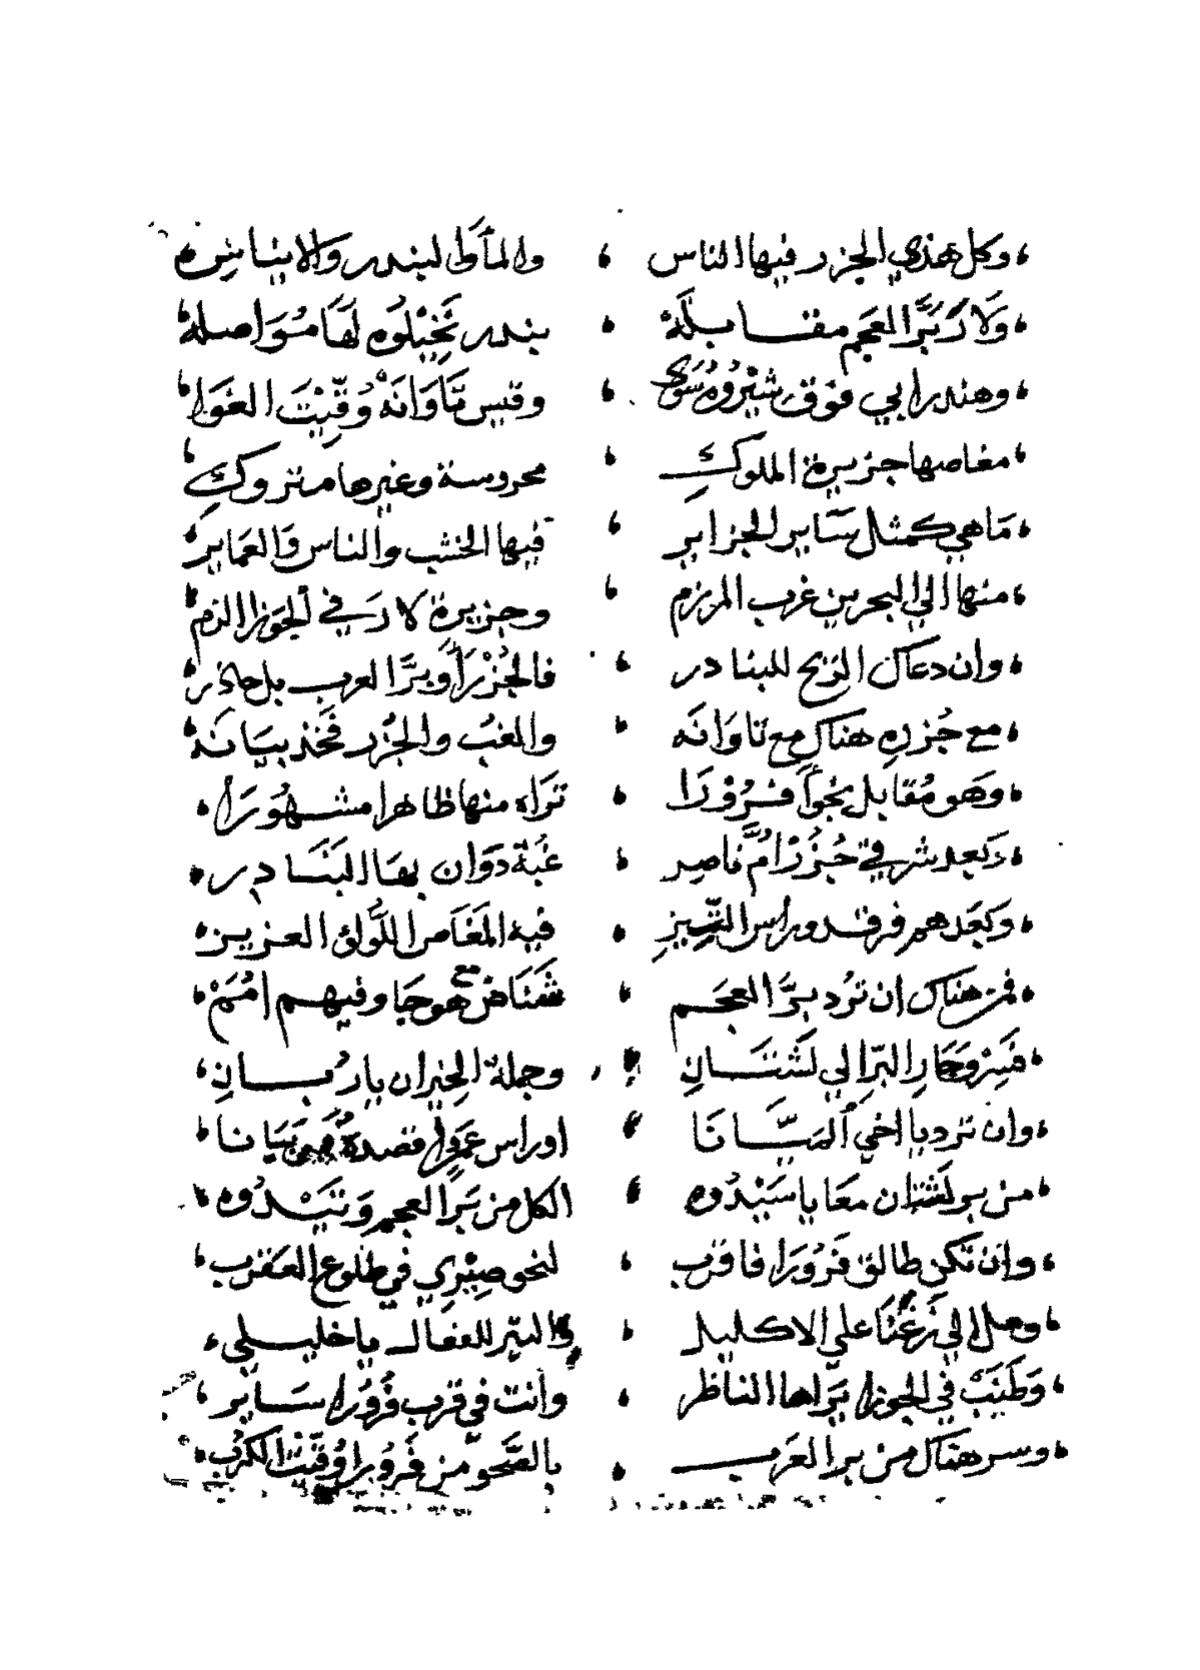 وكل هذي الجزر فيها الناس ، والماء والبندر والايناس
وَلَارَ بَرَّ العَجَم مقابلَة ، بندر نَخِيْلُوه لَهَا مُوَاصلة
وهندرابي فوق شِيْرُوهُ سَوى ، وقيس تَاوَانَهْ وُقِّيْتَ الغَوَا
مغاصها جزيرة الملوكِ ، محروسة وغيرها متروكِ
مَاهي كمثل سَاير الجزاير ، فيها الخشب والناس وَالعَماير
منها الي البحرين غرب المرزم ، وجزيرة لارَ في الجَوزا الزم
وان دعاك الريح للبنادر ، فالجُزْرَ وبرَّ العرب بل حاذر
مع جُزره هناك مع تاوَانَه ، والغبُ والجُزر فَخذ بيَانَه
وَهَو مُقابل نجوَ فَرُوْرَا ، تَراه منها ظاهرا مشهُورَا
وَبَعد شرقي جُزُرْ أمَّ ناصِر ، غُبَّة دَوَان بهَا البَنَادر
وَبَعَد هم فرقد وراس التِّيزِ ، فيه المَغَاص اللُّولؤ العزيز
فمن هناك ان تُرد برَّ العجَم ، شَنَاصْ مع هوجَا وفيهم أُمَمْ
فَسِرْ وَجَارِ البَرّ الي لَشْتَانِ ، وجملة الجيران يا رُبانِ
وان ترد يا اخي المَيَّانَا ، او راس عمَوا قصدهُ بَيَانا
من بر لَشْتان معَا يا سَيْدُوه ، الكل من بَرَّ العجم وتَيْدُوه
وان تكن طالق فَرُورَا فاقرب ، لنحو صِيْرِي في طلوع العَقرب
وصل الي زَعْنَا علي الاكليل ، والتير للغفال يا خليلي
وَطَنَبْ في الجوزا يَرَاها الناظر ، وانت في قرب فُرُورا سَاير
وسر هناك من بر العَرب ، بالصَّحو من فَرُورا وُقِّيْتَ الكَرْب